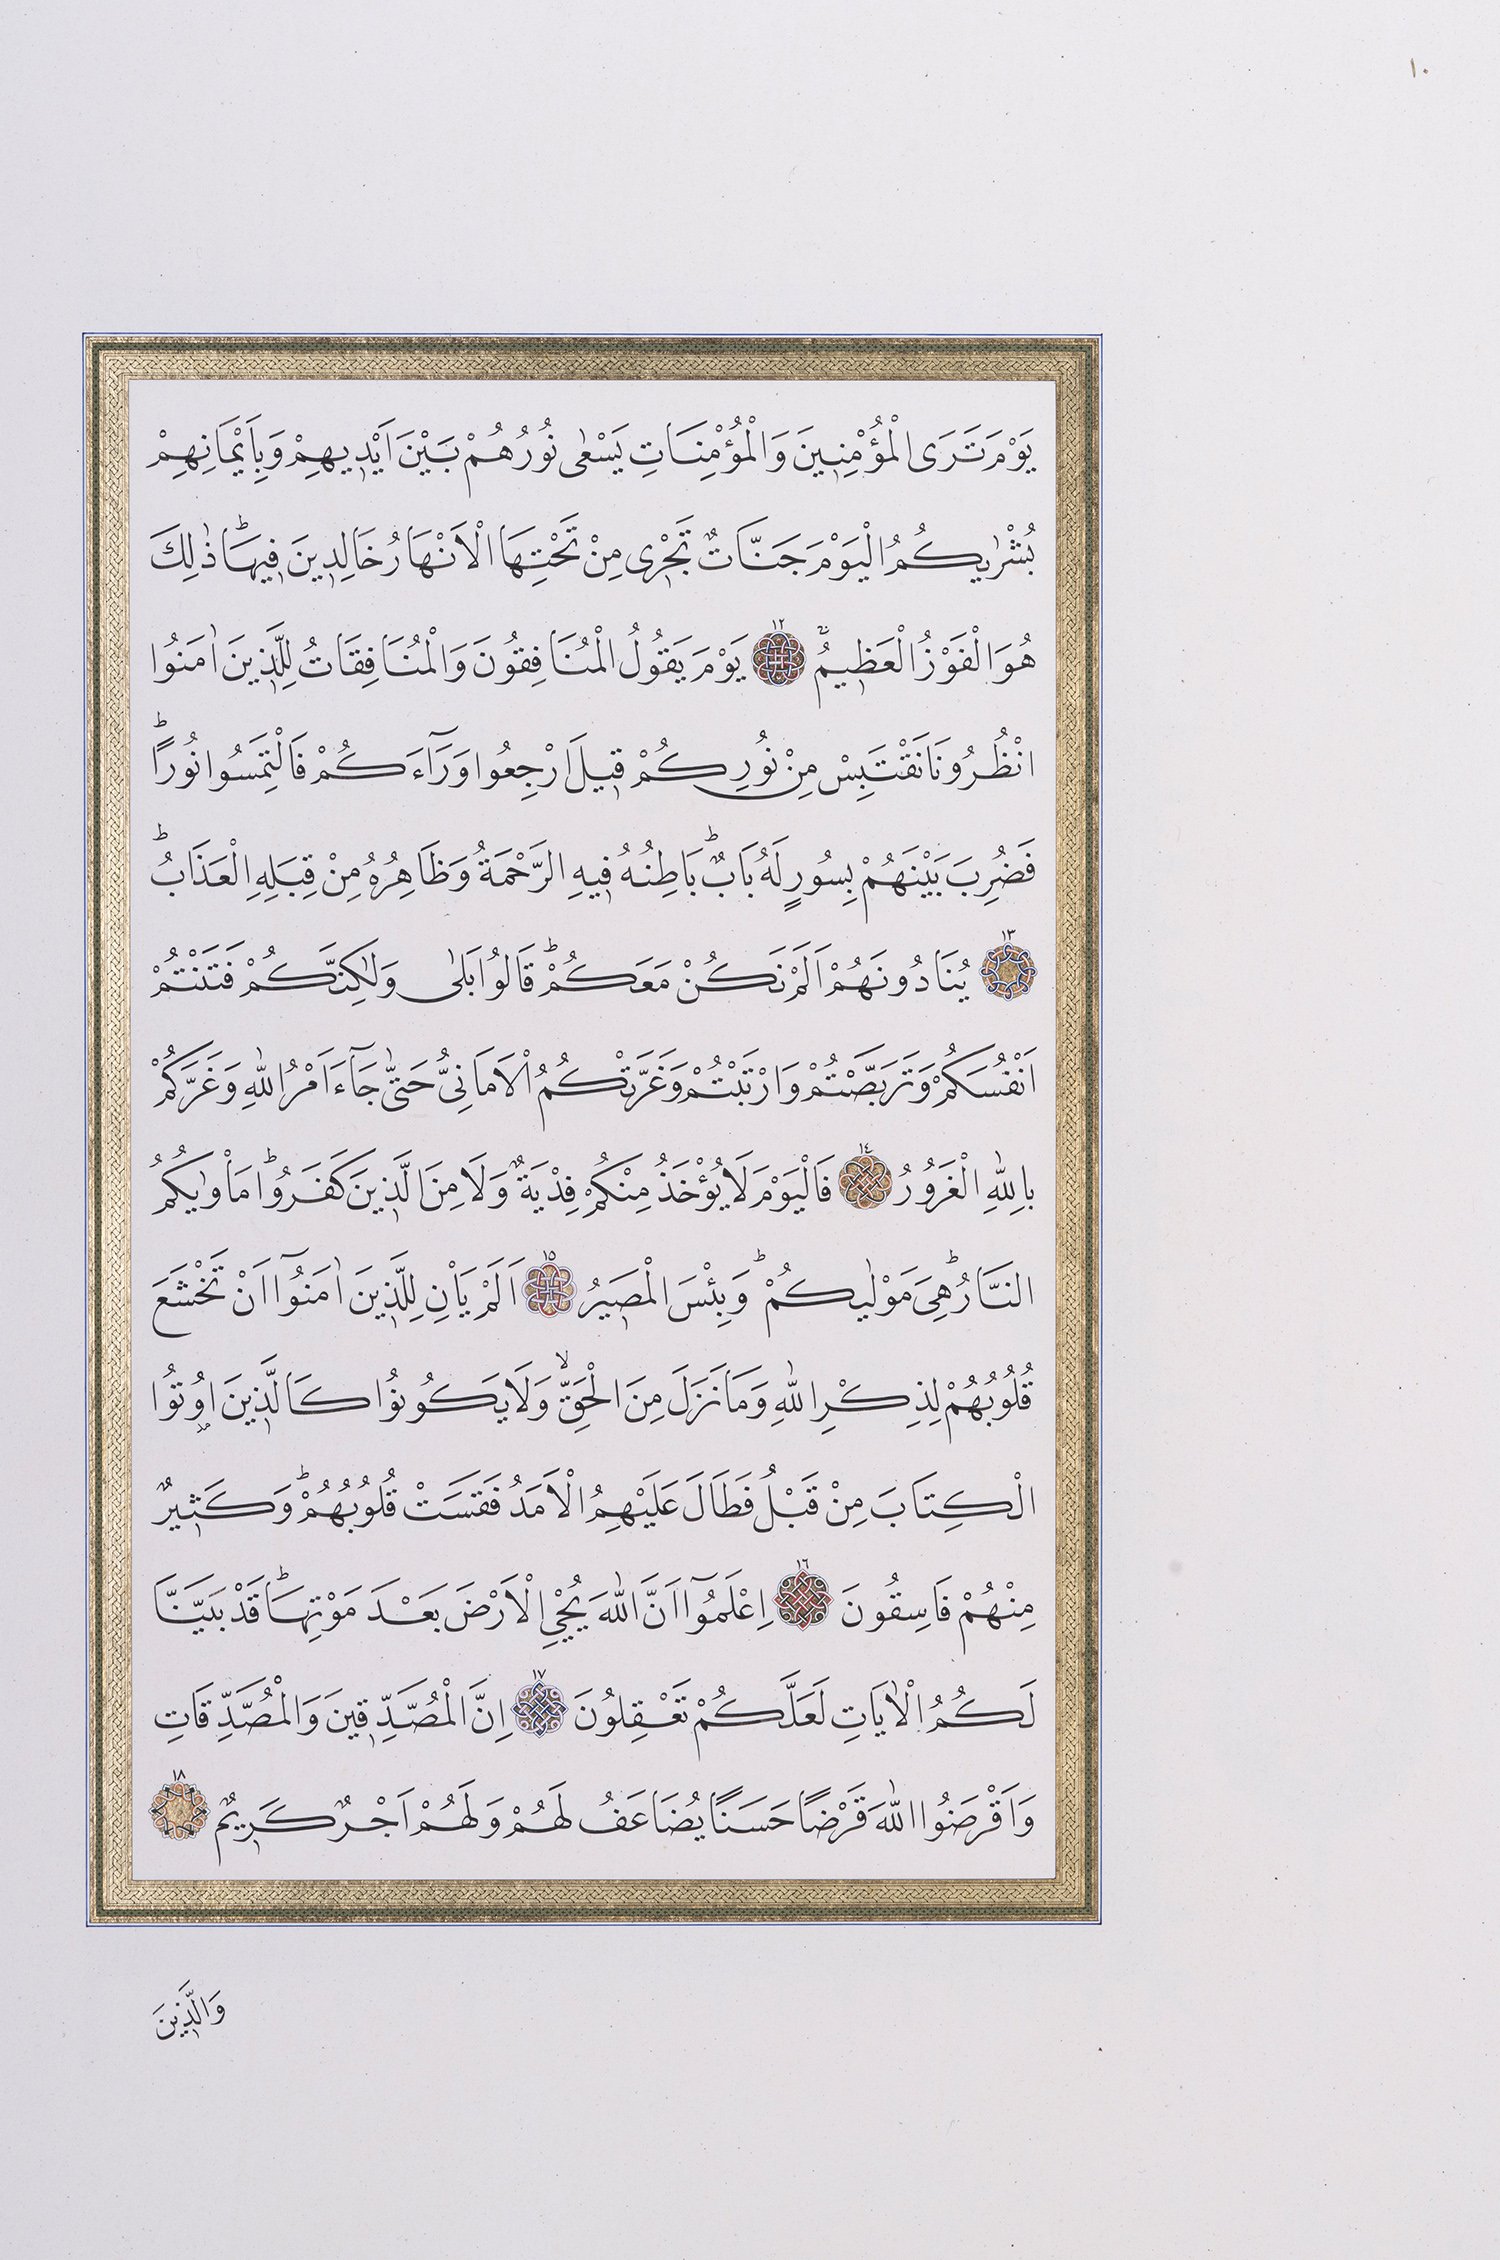 ١٠
يَوْمَ تَرَى الْمُؤْمِنٖينَ وَالْمُؤْمِنَاتِ يَسْعٰى نُورُهُمْ بَيْنَ اَيْدٖيهِمْ وَبِاَيْمَانِهِمْ
بُشْرٰيكُمُ الْيَوْمَ جَنَّاتٌ تَجْرٖى مِنْ تَحْتِهَا الْاَنْهَارُ خَالِدٖينَ فٖيهَاؕ ذٰلِكَ
هُوَ الْفَوْزُ الْعَظٖيمُۚ ١٢ يَوْمَ يَقُولُ الْمُنَافِقُونَ وَالْمُنَافِقَاتُ لِلَّذٖينَ اٰمَنُوا
انْظُرُونَا نَقْتَبِسْ مِنْ نُورِكُمْ قٖيلَ ارْجِعُوا وَرَٓاءَكُمْ فَالْتَمِسُوا نُوراًؕ
فَضُرِبَ بَيْنَهُمْ بِسُورٍ لَهُ بَابٌؕ بَاطِنُهُ فٖيهِ الرَّحْمَةُ وَظَاهِرُهُ مِنْ قِبَلِهِ الْعَذَابُؕ
١٣ يُنَادُونَهُمْ اَلَمْ نَكُنْ مَعَكُمْؕ قَالُوا بَلٰى وَلٰكِنَّكُمْ فَتَنْتُمْ
اَنْفُسَكُمْ وَتَرَبَّصْتُمْ وَارْتَبْتُمْ وَغَرَّتْكُمُ الْاَمَانِىُّ حَتّٰى جَٓاءَ اَمْرُ اللّٰهِ وَغَرَّكُمْ
بِاللّٰهِ الْغَرُورُ ١٤ فَالْيَوْمَ لَا يُؤْخَذُ مِنْكُمْ فِدْيَةٌ وَلَا مِنَ الَّذٖينَ كَفَرُواؕ مَأْوٰيكُمُ
النَّارُؕ هِىَ مَوْلٰيكُمْؕ وَبِئْسَ الْمَصٖيرُ ١٥ اَلَمْ يَأْنِ لِلَّذٖينَ اٰمَنُٓوا اَنْ تَخْشَعَ
قُلُوبُهُمْ لِذِكْرِ اللّٰهِ وَمَا نَزَلَ مِنَ الْحَقِّۙ وَلَا يَكُونُوا كَالَّذٖينَ اُوتُوا
الْكِتَابَ مِنْ قَبْلُ فَطَالَ عَلَيْهِمُ الْاَمَدُ فَقَسَتْ قُلُوبُهُمْؕ وَكَثٖيرٌ
مِنْهُمْ فَاسِقُونَ ١٦ اِعْلَمُٓوا اَنَّ اللّٰهَ يُحْيِ الْاَرْضَ بَعْدَ مَوْتِهَاؕ قَدْ بَيَّنَّا
لَكُمُ الْاٰيَاتِ لَعَلَّكُمْ تَعْقِلُونَ ١٧ اِنَّ الْمُصَّدِّقٖينَ وَالْمُصَّدِّقَاتِ
وَاَقْرَضُوا اللّٰهَ قَرْضًا حَسَنًا يُضَاعَفُ لَهُمْ وَلَهُمْ اَجْرٌ كَرٖيمٌ ١٨
وَالَّذٖينَ